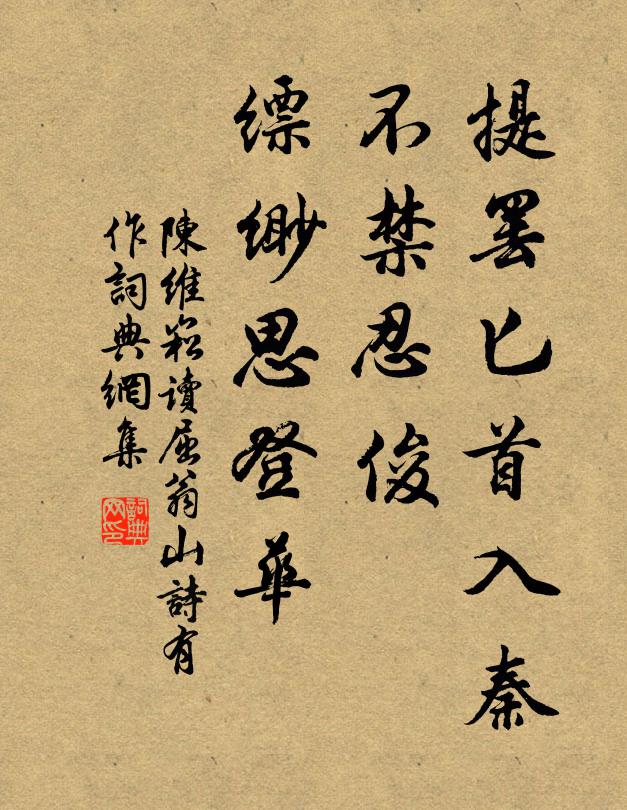 提罢匕首入秦
不禁忍俊
缥缈思登華
陳維崧讀屈翁山詩有
作詞典網集
詞典網印